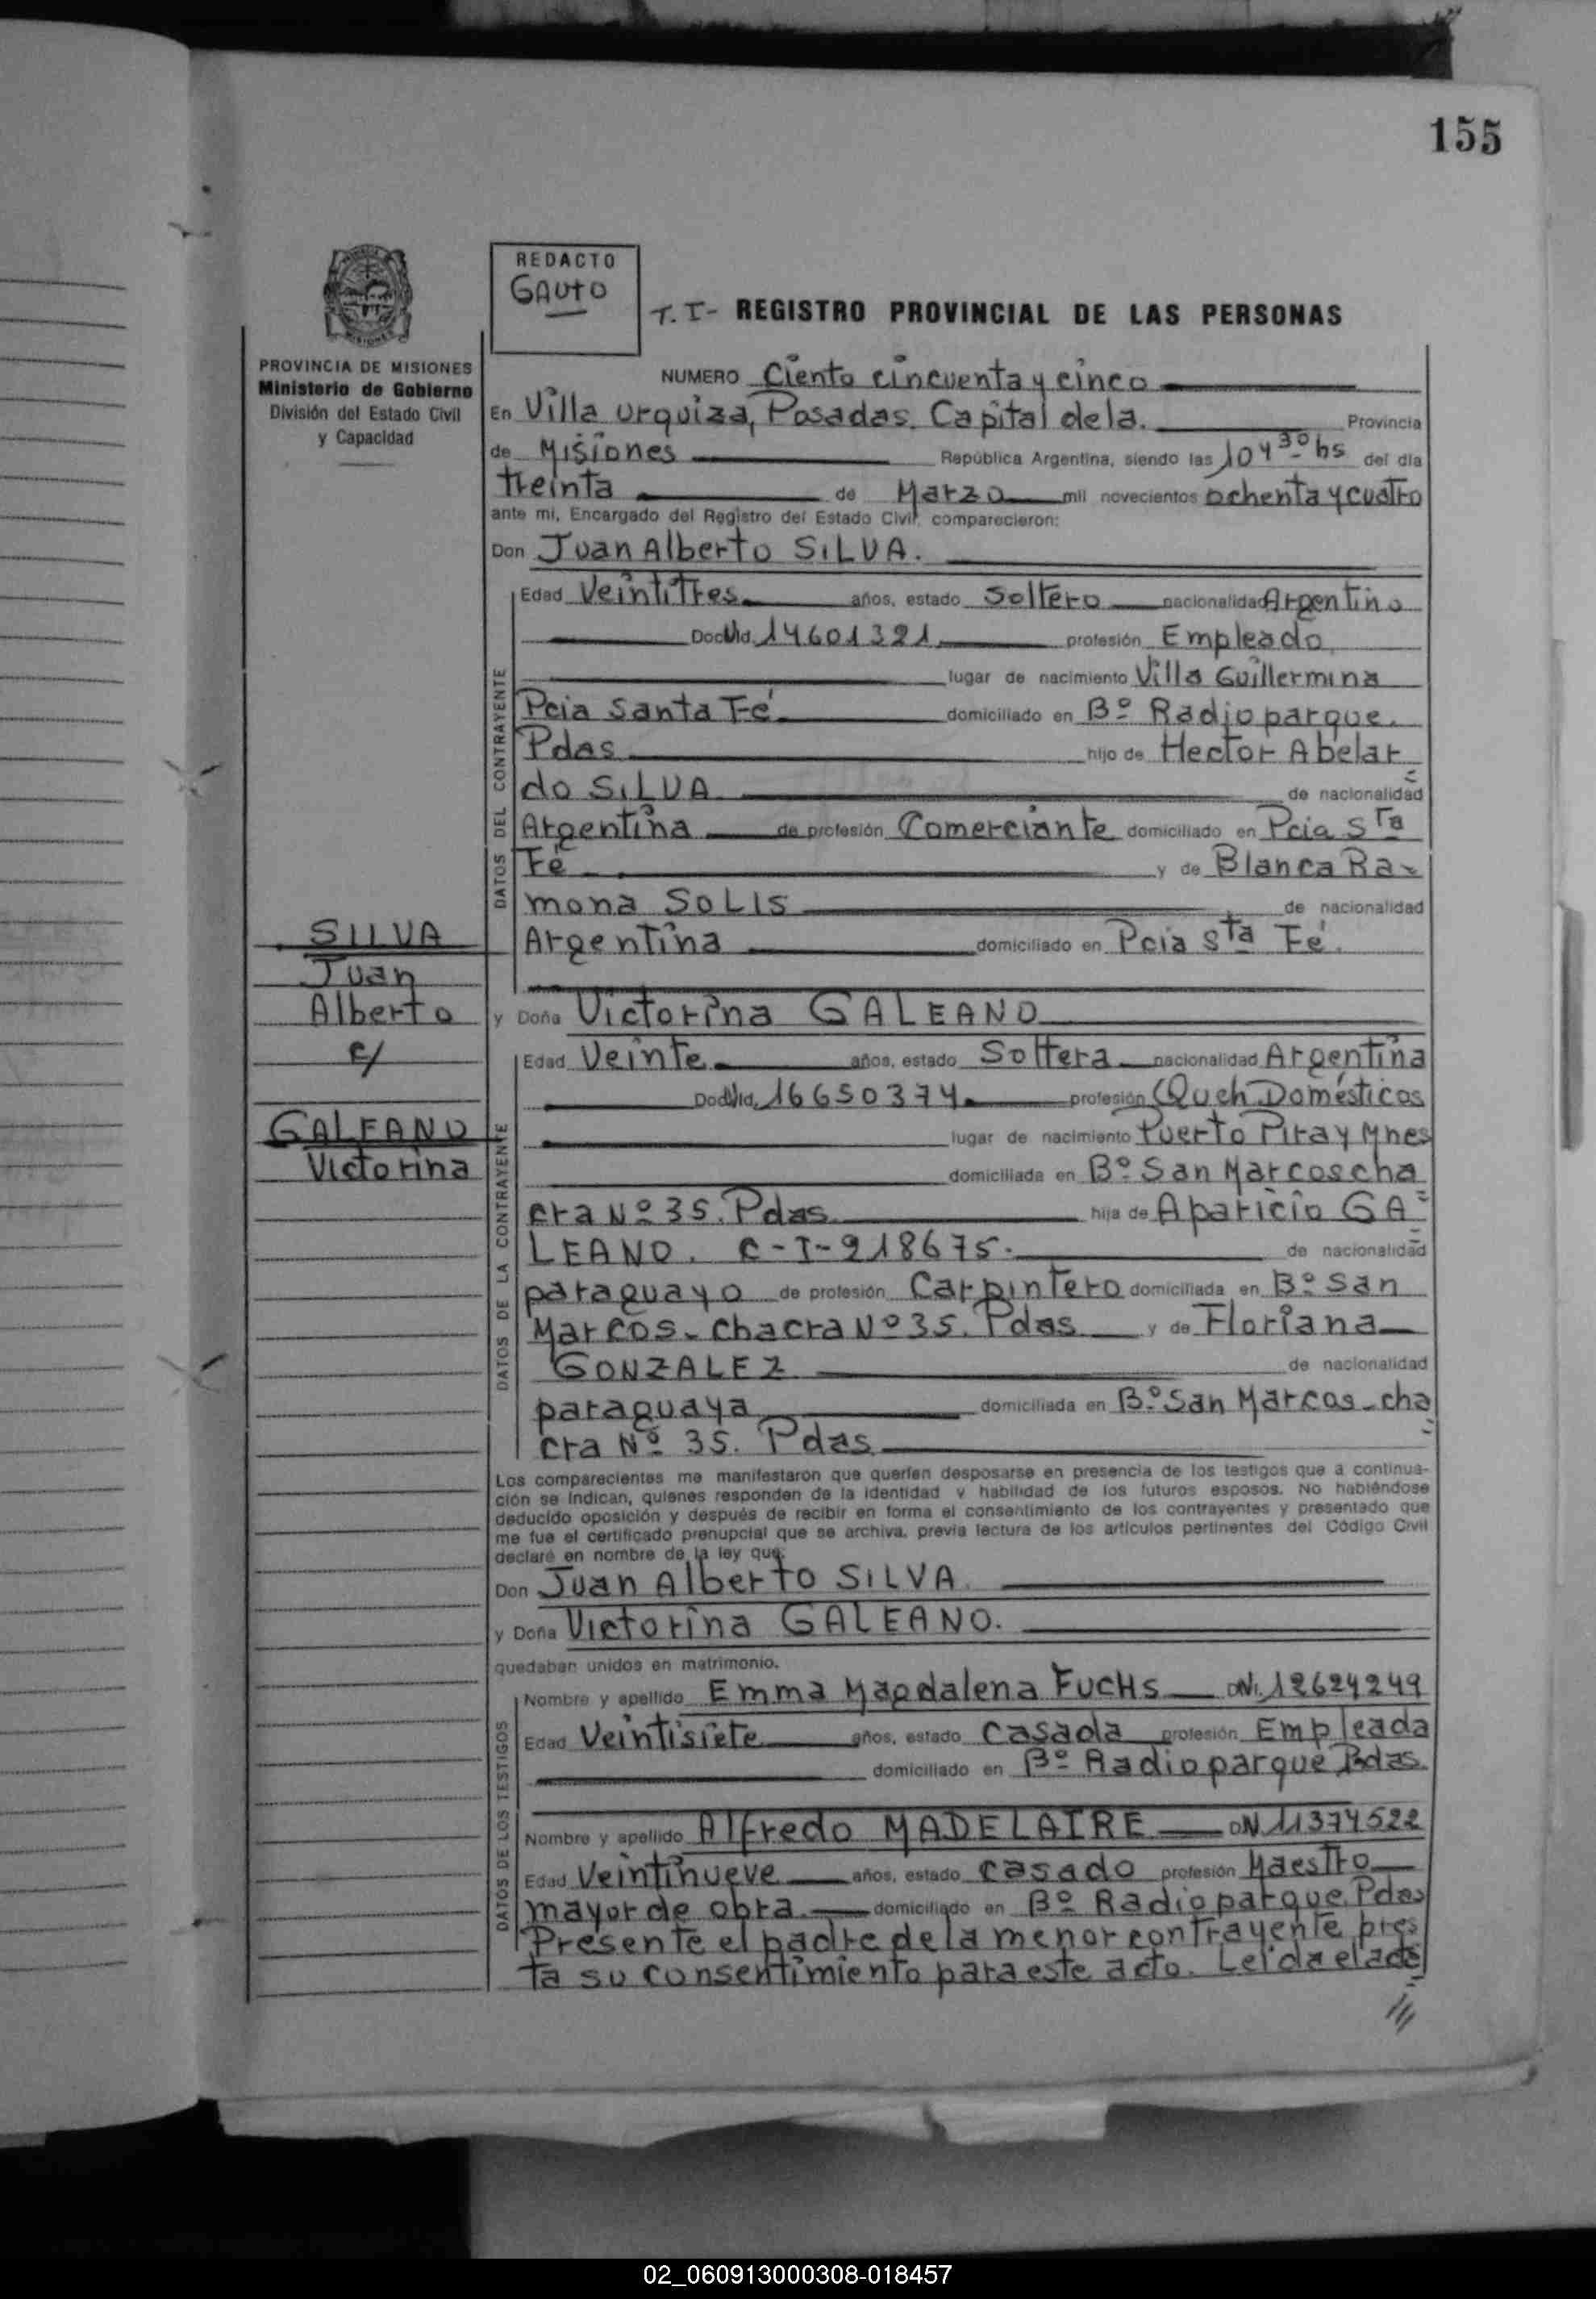 155
REDACTO
GAUTO
T. I- REGISTRO PROVINCIAL DE LAS PERSONAS
PROVINCIA DE MISIONES
Ministerio de Gobierno
División del Estado Civil
y Capacidad
NUMERO Ciento cincuenta y cinco
En Villa Urquiza, Posadas. Capital de la. Provincia
de Misiones República Argentina, siendo las 10 y 30 hs del día
treinta de Marzo mil novecientos ochenta y cuatro
ante mi, Encargado del Registro del Estado Civil, comparecieron:
Don Juan Alberto SILVA.
DATOS DEL CONTRAYENTE
Edad Veintitres años, estado Soltero nacionalidad Argentino
Doc. Nid. 14601321 profesión Empleado
lugar de nacimiento Villa Guillermina
Pcia Santa Fé domiciliado en Bº Radioparque.
Pdas hijo de Hector Abelar
do SILVA de nacionalidad
Argentina de profesión Comerciante domiciliado en Pcia Sta
Fé y de Blanca Ra-
mona SOLIS de nacionalidad
Argentina domiciliado en Pcia Sta Fé.
SILVA
Juan
Alberto
c/
GALEANO
Victorina
y Doña Victorina GALEANO
DATOS DE LA CONTRAYENTE
Edad Veinte años, estado Soltera nacionalidad Argentina
Doc. Nid. 16650374 profesión Queh Domésticos
lugar de nacimiento Puerto Piray Mnes
domiciliada en Bº San Marcos cha
cra Nº 35. Pdas. hija de Aparicio GA-
LEANO. C-I-918675. de nacionalidad
paraguayo de profesión Carpintero domiciliada en Bº San
Marcos - chacra Nº 35. Pdas y de Floriana
GONZALEZ de nacionalidad
paraguaya domiciliada en Bº San Marcos - cha
cra Nº 35. Pdas
Los comparecientes me manifestaron que querían desposarse en presencia de los testigos que a continua-
ción se indican, quienes responden de la identidad y habilidad de los futuros esposos. No habiéndose
deducido oposición y después de recibir en forma el consentimiento de los contrayentes y presentado que
me fue el certificado prenupcial que se archiva, previa lectura de los artículos pertinentes del Código Civil
declaré en nombre de la ley que:
Don Juan Alberto SILVA.
y Doña Victorina GALEANO.
quedaban unidos en matrimonio.
DATOS DE LOS TESTIGOS
Nombre y apellido Emma Magdalena FUCHS DNI. 12624249
Edad Veintisiete años, estado Casada profesión Empleada
domiciliado en Bº Radioparque Pdas.
Nombre y apellido Alfredo MADELAIRE DN 11374522
Edad Veintinueve años, estado casado profesión Maestro
mayor de obra. domiciliado en Bº Radioparque. Pdas
Presente el padre de la menor contrayente pres
ta su consentimiento para este acto. Leída el acta
02_060913000308-018457